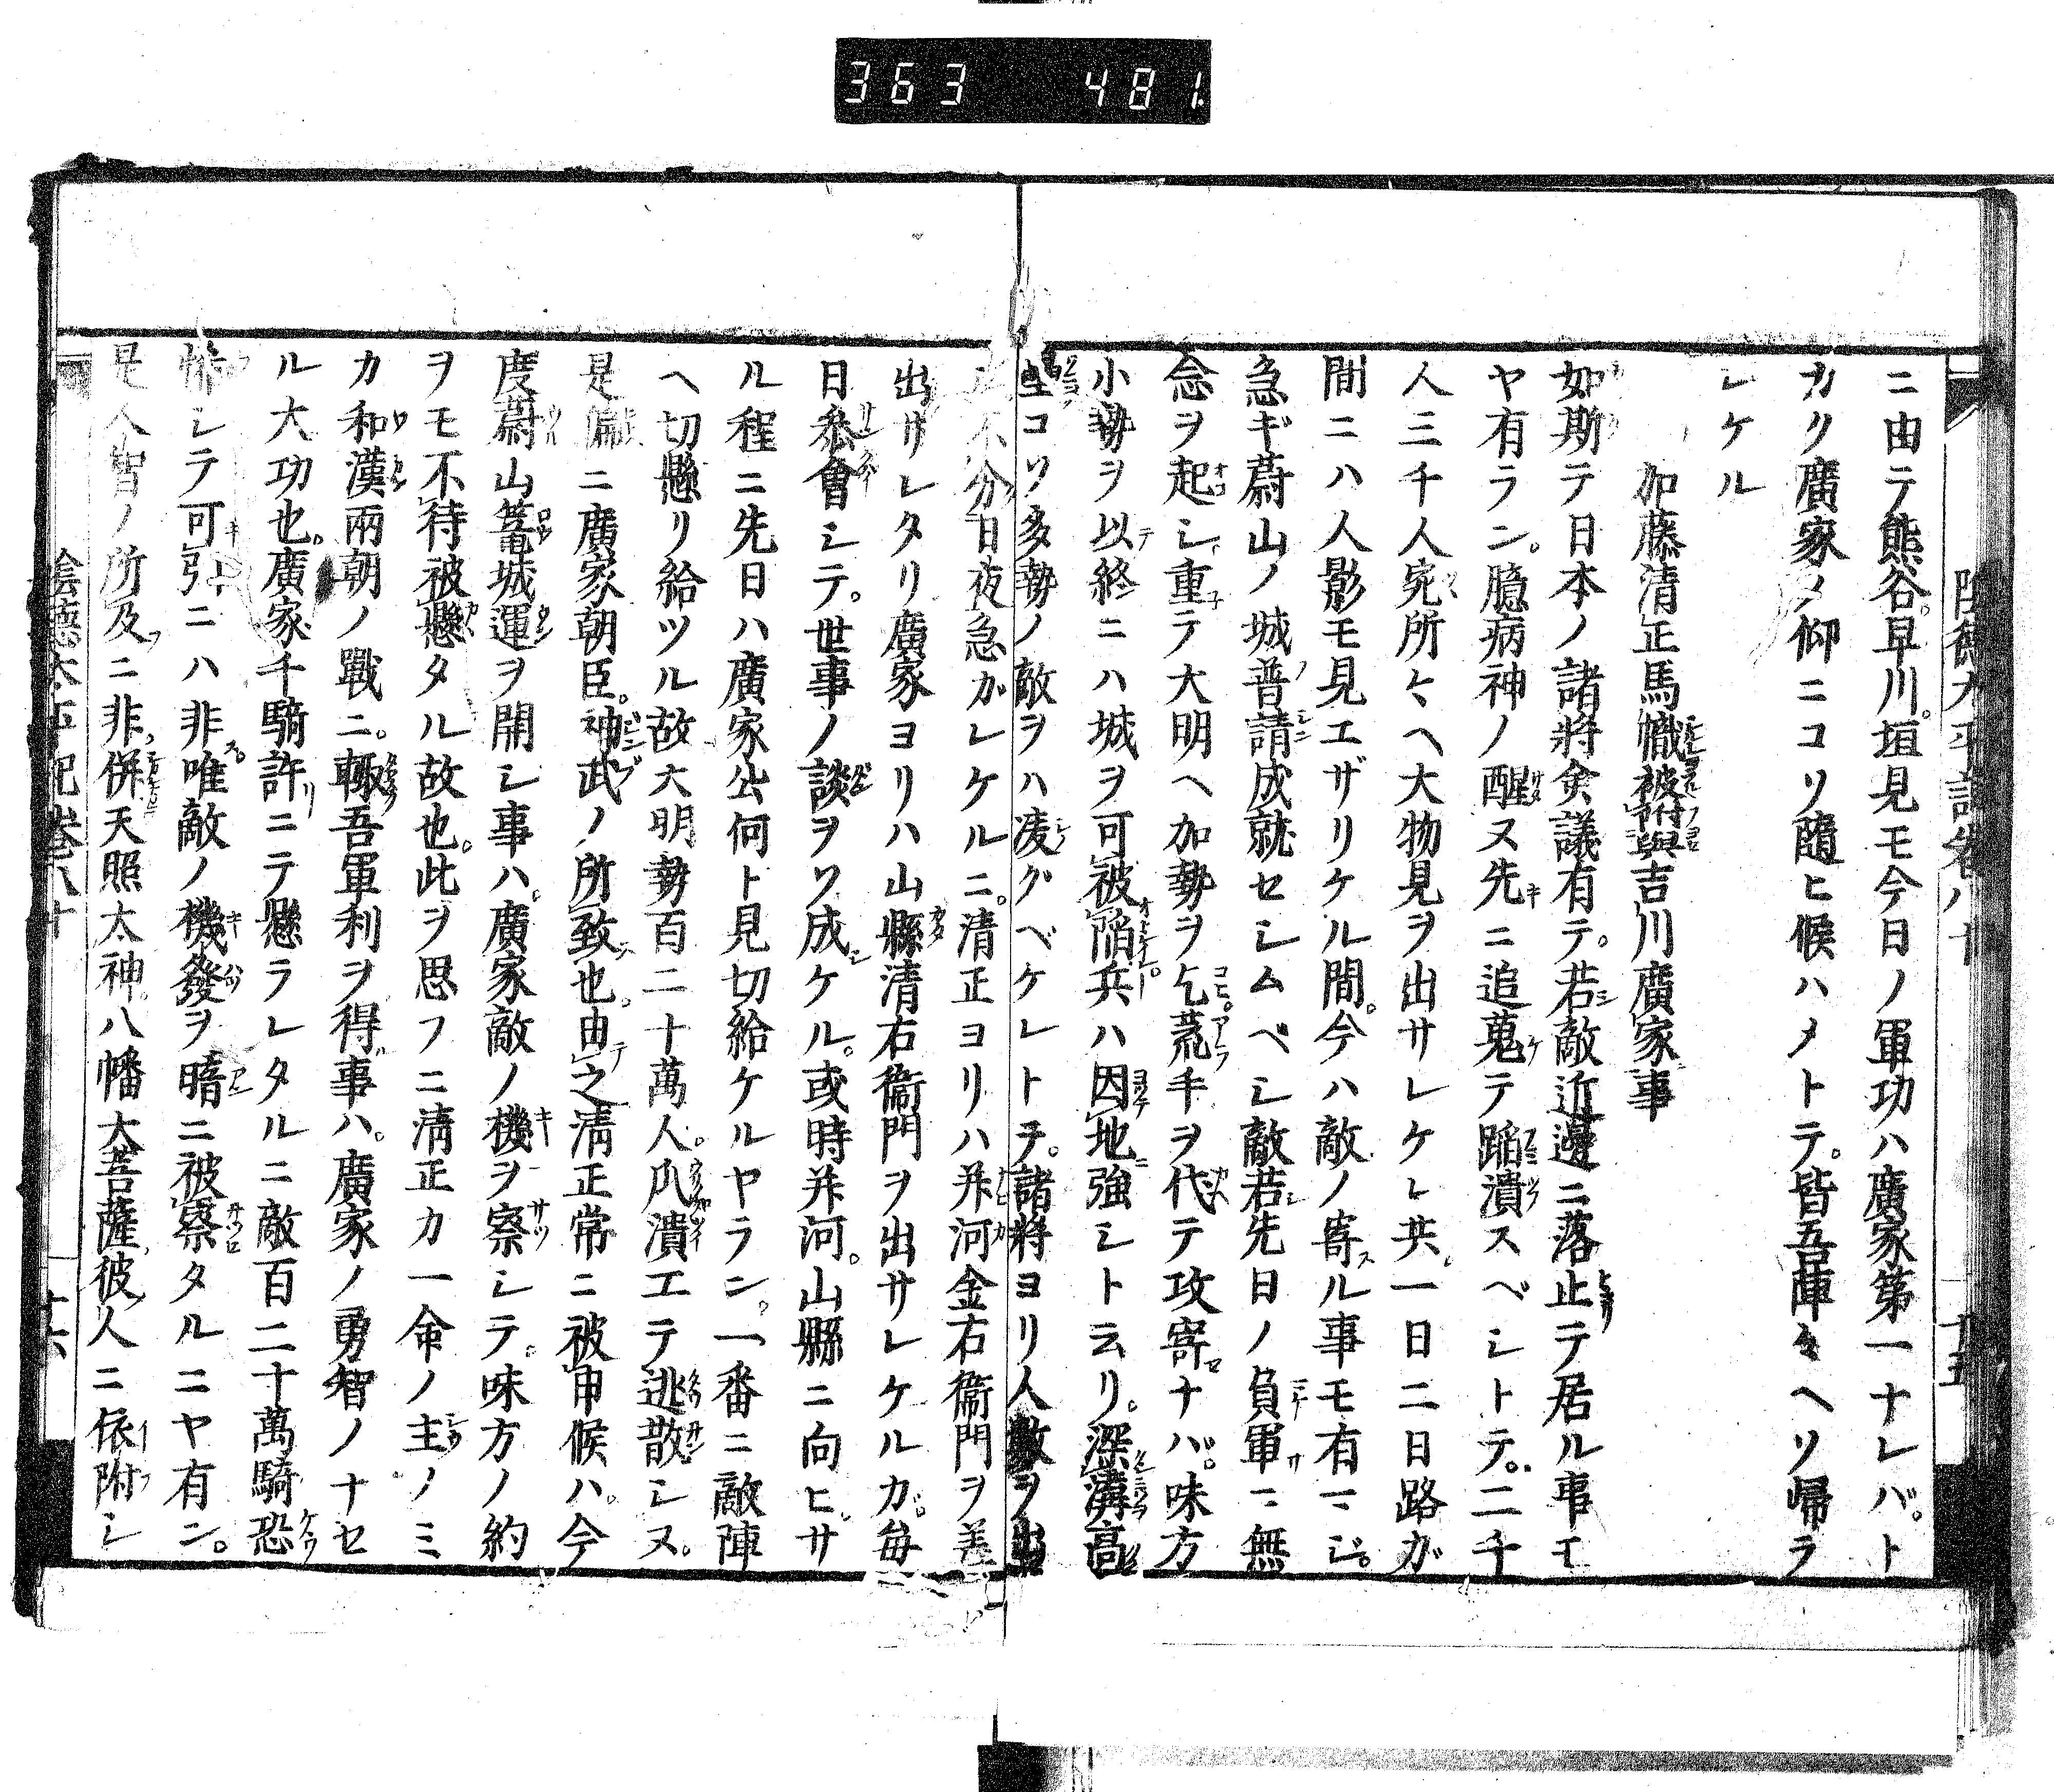 363 481
陰徳太平記卷八十 十五
ニ由テ熊谷。早川。垣見モ今日ノ軍功ハ廣家第一ナレバ。ト
カク廣家ノ仰ニコソ隨ヒ候ハメトテ。皆吾陣々ヘソ帰ラ
レケル
加藤清正馬幟被附與吉川廣家事
如斯テ日本ノ諸將僉議有テ。若敵近邊ニ落止テ居ル事モ
ヤ有ラン。臆病神ノ醒ヌ先ニ追蒐テ蹈潰スベシトテ。二千
人三千人宛所々ヘ大物見ヲ出サレケレ共。一日二日路ガ
間ニハ人影モ見エザリケル間。今ハ敵ノ寄ル事モ有マジ。
急ギ蔚山ノ城普請成就セシムベシ敵若先日ノ負軍ニ無
念ヲ起シ。重テ大明ヘ加勢ヲ乞。荒手ヲ代テ攻寄ナバ。味方
小勢ヲ以終ニハ城ヲ可被陥兵ハ因地強シト云リ。深溝高
壘コソ多勢ノ敵ヲハ凌グベケレトテ。諸將ヨリ人數ヲ出
不分日夜急ガレケルニ。清正ヨリハ并河金右衞門ヲ差
出サレタリ廣家ヨリハ山縣清右衞門ヲ出サレケルガ。毎
日參會シテ。世事ノ談ヲソ成ケル。或時并河。山縣ニ向ヒ。サ
ル程ニ先日ハ廣家公何ト見切給ケルヤラン。一番ニ敵陣
ヘ切懸リ給ツル故大明勢百二十萬人。瓜潰エテ逃散シヌ。
是偏ニ廣家朝臣。神武ノ所致也。由之清正常ニ被申候ハ。今
度蔚山篭城運ヲ開シ事ハ。廣家敵ノ機ヲ察シテ。味方ノ約
ヲモ不待被懸タル故也。此ヲ思フニ清正カ一命ノ主ノミ
カ和漢兩朝ノ戰ニ。輙吾軍利ヲ得事ハ。廣家ノ勇智ノナセ
ル大功也。廣家千騎許ニテ懸ラレタルニ敵百二十萬騎恐
怖シテ可引ニハ非。唯敵ノ機發ヲ暗ニ被察タルニヤ有ン。
是人智ノ所及ニ非。併天照太神。八幡大菩薩彼人ニ依附シ
陰徳太平記卷八十 十六